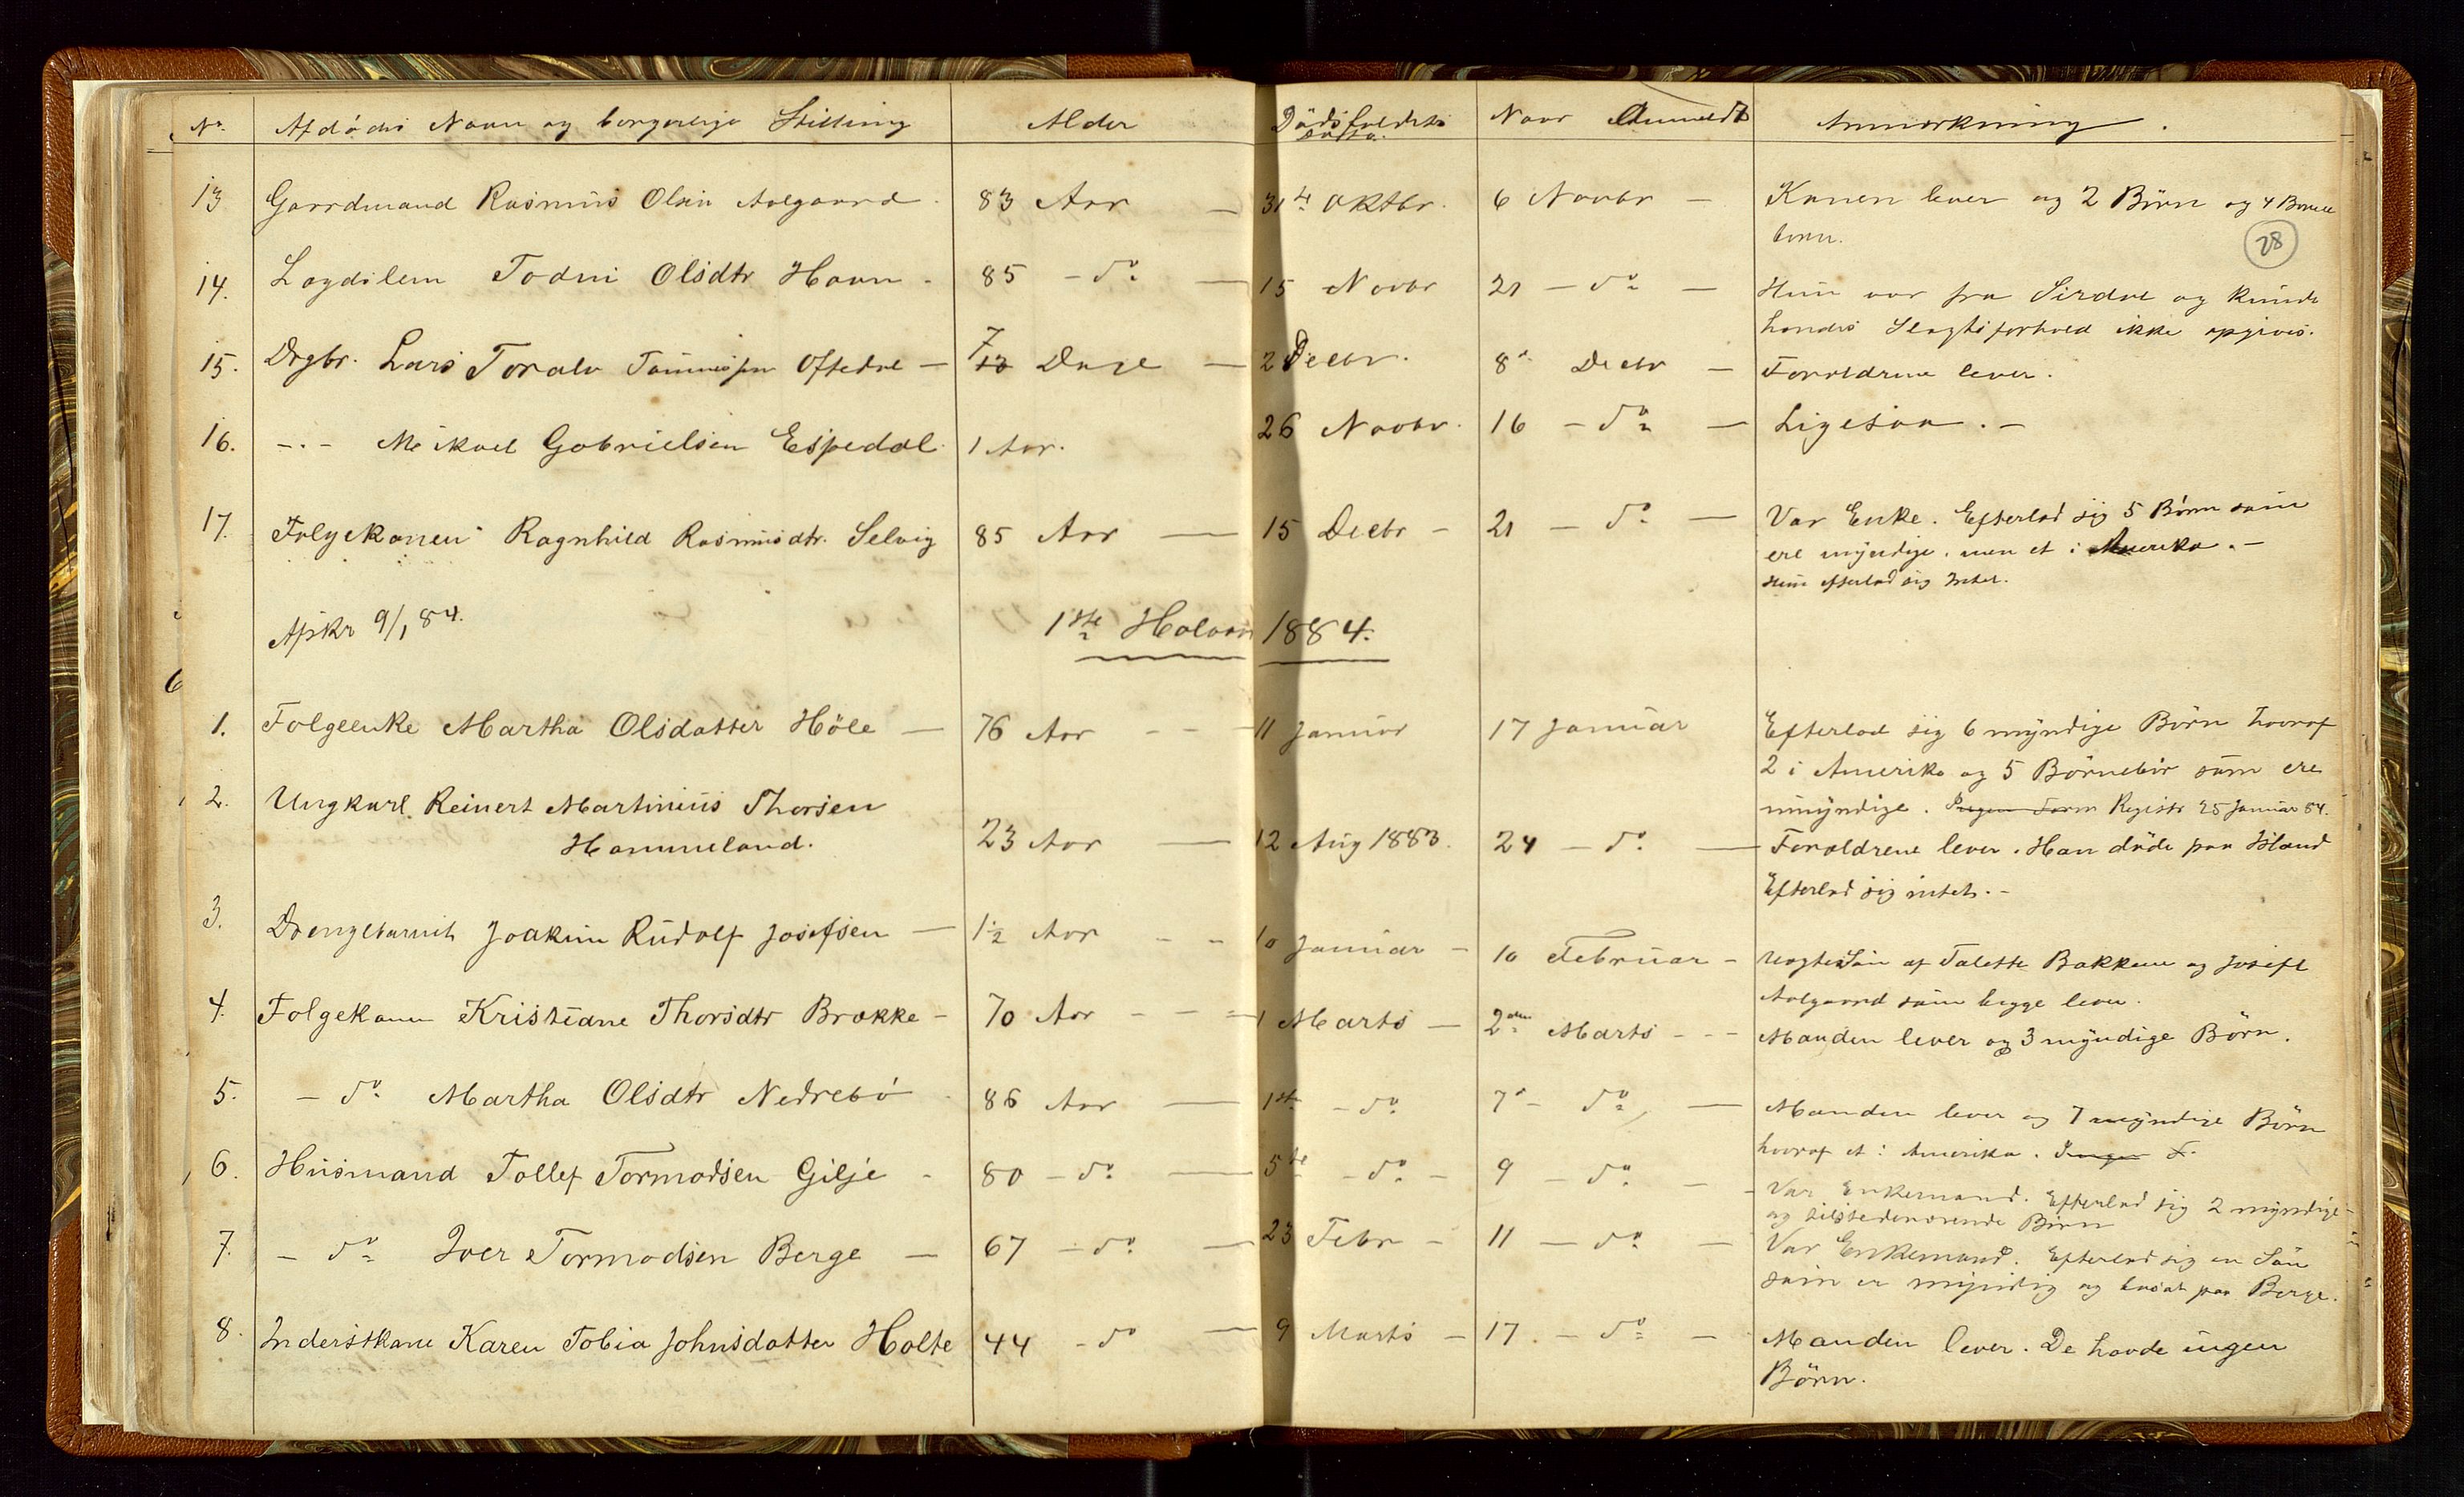 No. Afdødes Navn og borgerlige Stilling Alder Dödsfaldets Datto. Naar Anmeldt Anmærkning.
13 Gaardmand Rasmus Olsen Aalgaard. 83 Aar — 31te Oktbr. 6 Novbr — Konen lever og 2 Börn og 4 Börne
börn.
28
14. Lægdslem Todni Olsdtr Havn - 85 - do — 15 Novbr 21 - do — Hun var fra Sirdal og kunde
hendes Slægtsforhold ikke opgives.
15. Drgbr. Lars Toralv Tønnesen Oftedal — 7 13 Dage — 2 Decbr. 8de Decbr — Forældrene lever.
16. -.- Mikael Gabrielsen Espedal 1 Aar. 26 Novbr. 16 - do — Ligesaa. -
17. Følgekonen Ragnhild Rasmusdtr. Selvig 85 Aar — 15 Decbr - 21 - do — Var Enke. Efterlod sig 5 Börn som
ere myndige, men et i Amerika. -
Hun efterlod sig Intet.
Afskr 9/1 84. 1ste Halvaar 1884.
6
1. Folgeenke Martha Olsdatter Höle — 76 Aar - - - 11 Januar 17 Januar Efterlod sig 6 myndige Börn hvoraf
2 i Amerika og 5 Börnebör som ere
umyndige. Registr 25 Januar 84.
2. Ungkarl Reinert Martinius Thorsen
Hammeland. 23 Aar — 12 Aug 1883. 24 - do — Forældrene lever. Han döde paa Island
Efterlod sig intet. -
3. Drengebarnet Joakim Rudolf Josefsen — 1½ Aar - - 10 Januar - 10 Februar - Uægte Sön af Talette Bakken og Josef
Aalgaard som begge lever.
4. Folgekone Kristine Thorsdtr Brække - 70 Aar - - - 1 Marts - 2den Marts - - - Manden lever og 3 myndige Börn.
5. - do Martha Olsdtr Nedrebö 86 Aar — 1ste - do 7de - do — Manden lever og 7 myndige Börn
hvoraf et i Amerika. Ingen F.
6. Husmand Tollef Tormodsen Gilje - 80 - do — 5te - do - 9 - do - - Var Enkemand. Efterlod sig 2 myndige
og tilstedeværende Börn
7. - do Iver Tormodsen Berge — 67 - do — 23 Febr - 11 - do — Var Enkemand. Efterlod sig en Sön
som er myndig og bosat paa Berge.
8. Inderstkone Karen Tobia Johnsdatter Holte 44 - do — 9 Marts - 17. - do — Manden lever. De havde ingen
Börn.